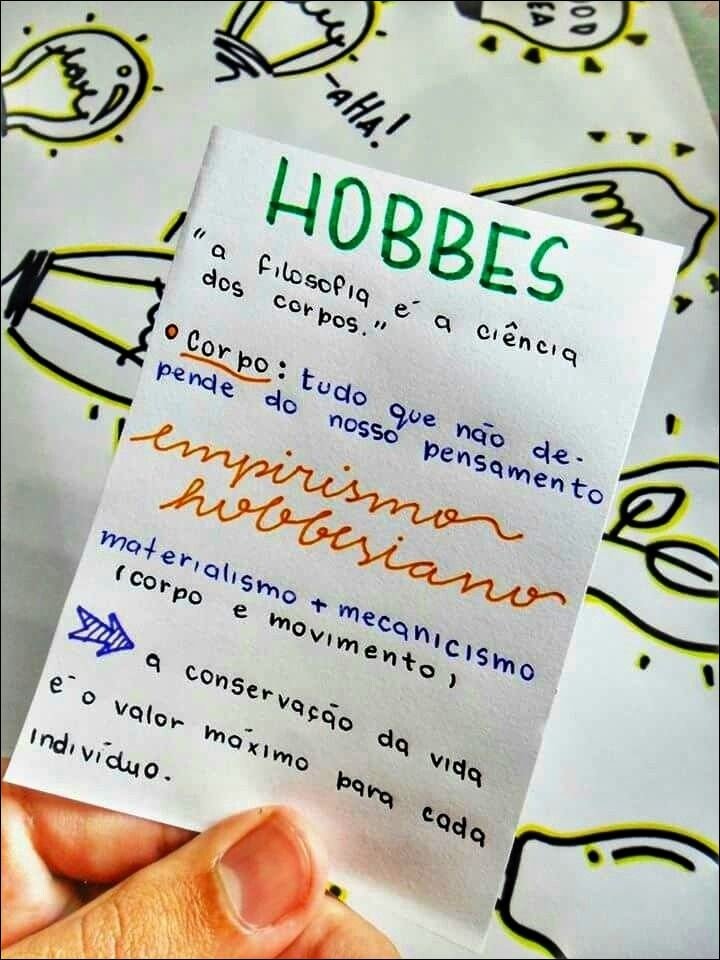 OOD
EA
-aHA!
HOBBES
"a filosofia é a ciência
dos corpos."
• Corpo: tudo que não de-
pende do nosso pensamento
empirismo
hobbesiano
materialismo + mecanicismo
(corpo e movimento)
a conservação da vida
é o valor máximo para cada
indivíduo.